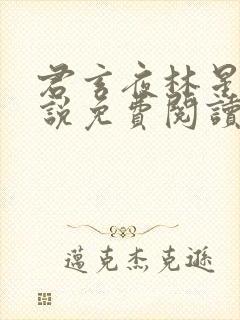 君言夜林是
說免費閱讀
邁克杰克遜